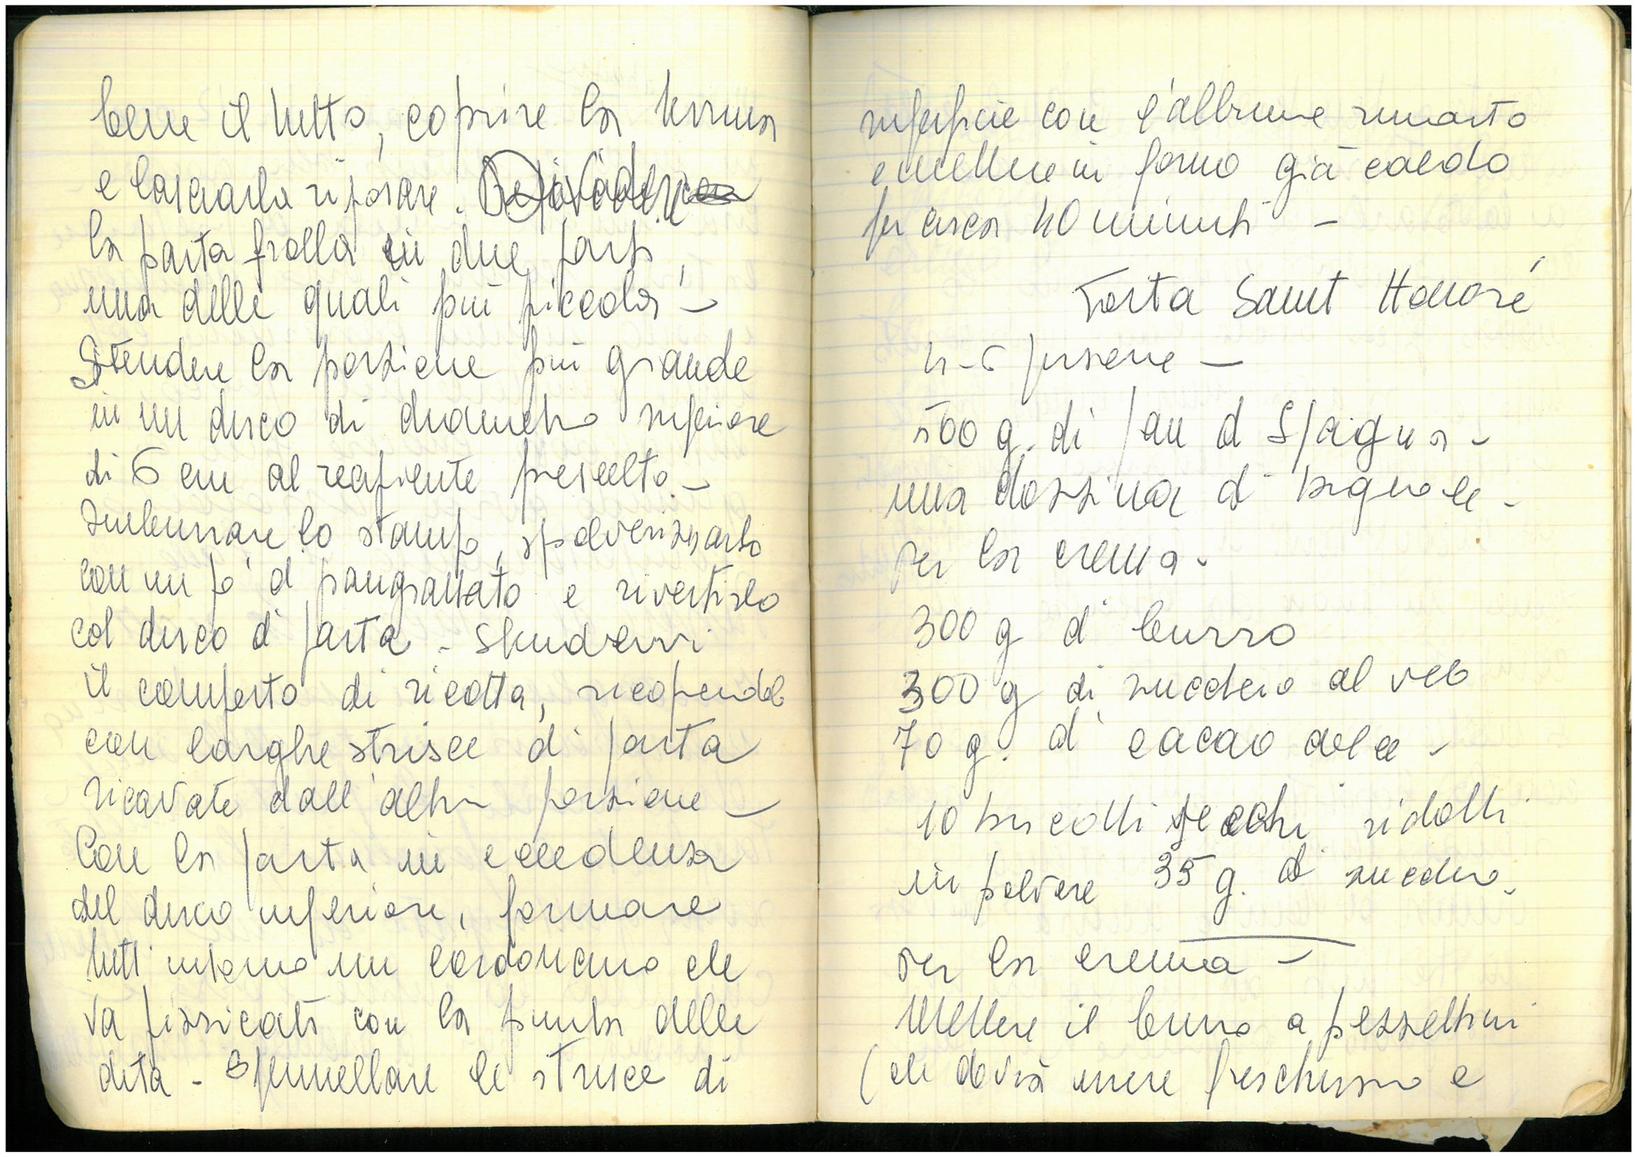 bene il tutto, coprire la terrina
e lasciarla riposare. Dividere
la pasta frolla in due parti,
una delle quali più piccola -
Stendere la porzione più grande
in un disco di diametro superiore
di 6 cm al recipiente prescelto. -
Imburrare lo stampo, spolverizzarlo
con un po' di pangrattato e rivestirlo
col disco di pasta - Stendervi
il composto di ricotta, ricoprendolo
con larghe strisce di pasta
ricavate dall'altra porzione -
Con la pasta in eccedenza
del disco inferiore, formare
tutt'intorno un cordoncino che
va pizzicato con la punta delle
dita - Spennellare le strisce di
superficie con l'albume rimasto
e mettere in forno già caldo
per circa 40 minuti -
Torta Saint Honoré
4-6 persone -
500 g. di pan di Spagna -
una dozzina di bignole -
per la crema -
300 g di burro
300 g di zucchero al velo
70 g. di cacao dolce -
10 biscotti secchi ridotti
in polvere 35 g. di zucchero.
per la crema -
Mettere il burro a pezzettini
(che dovrà essere freschissimo e